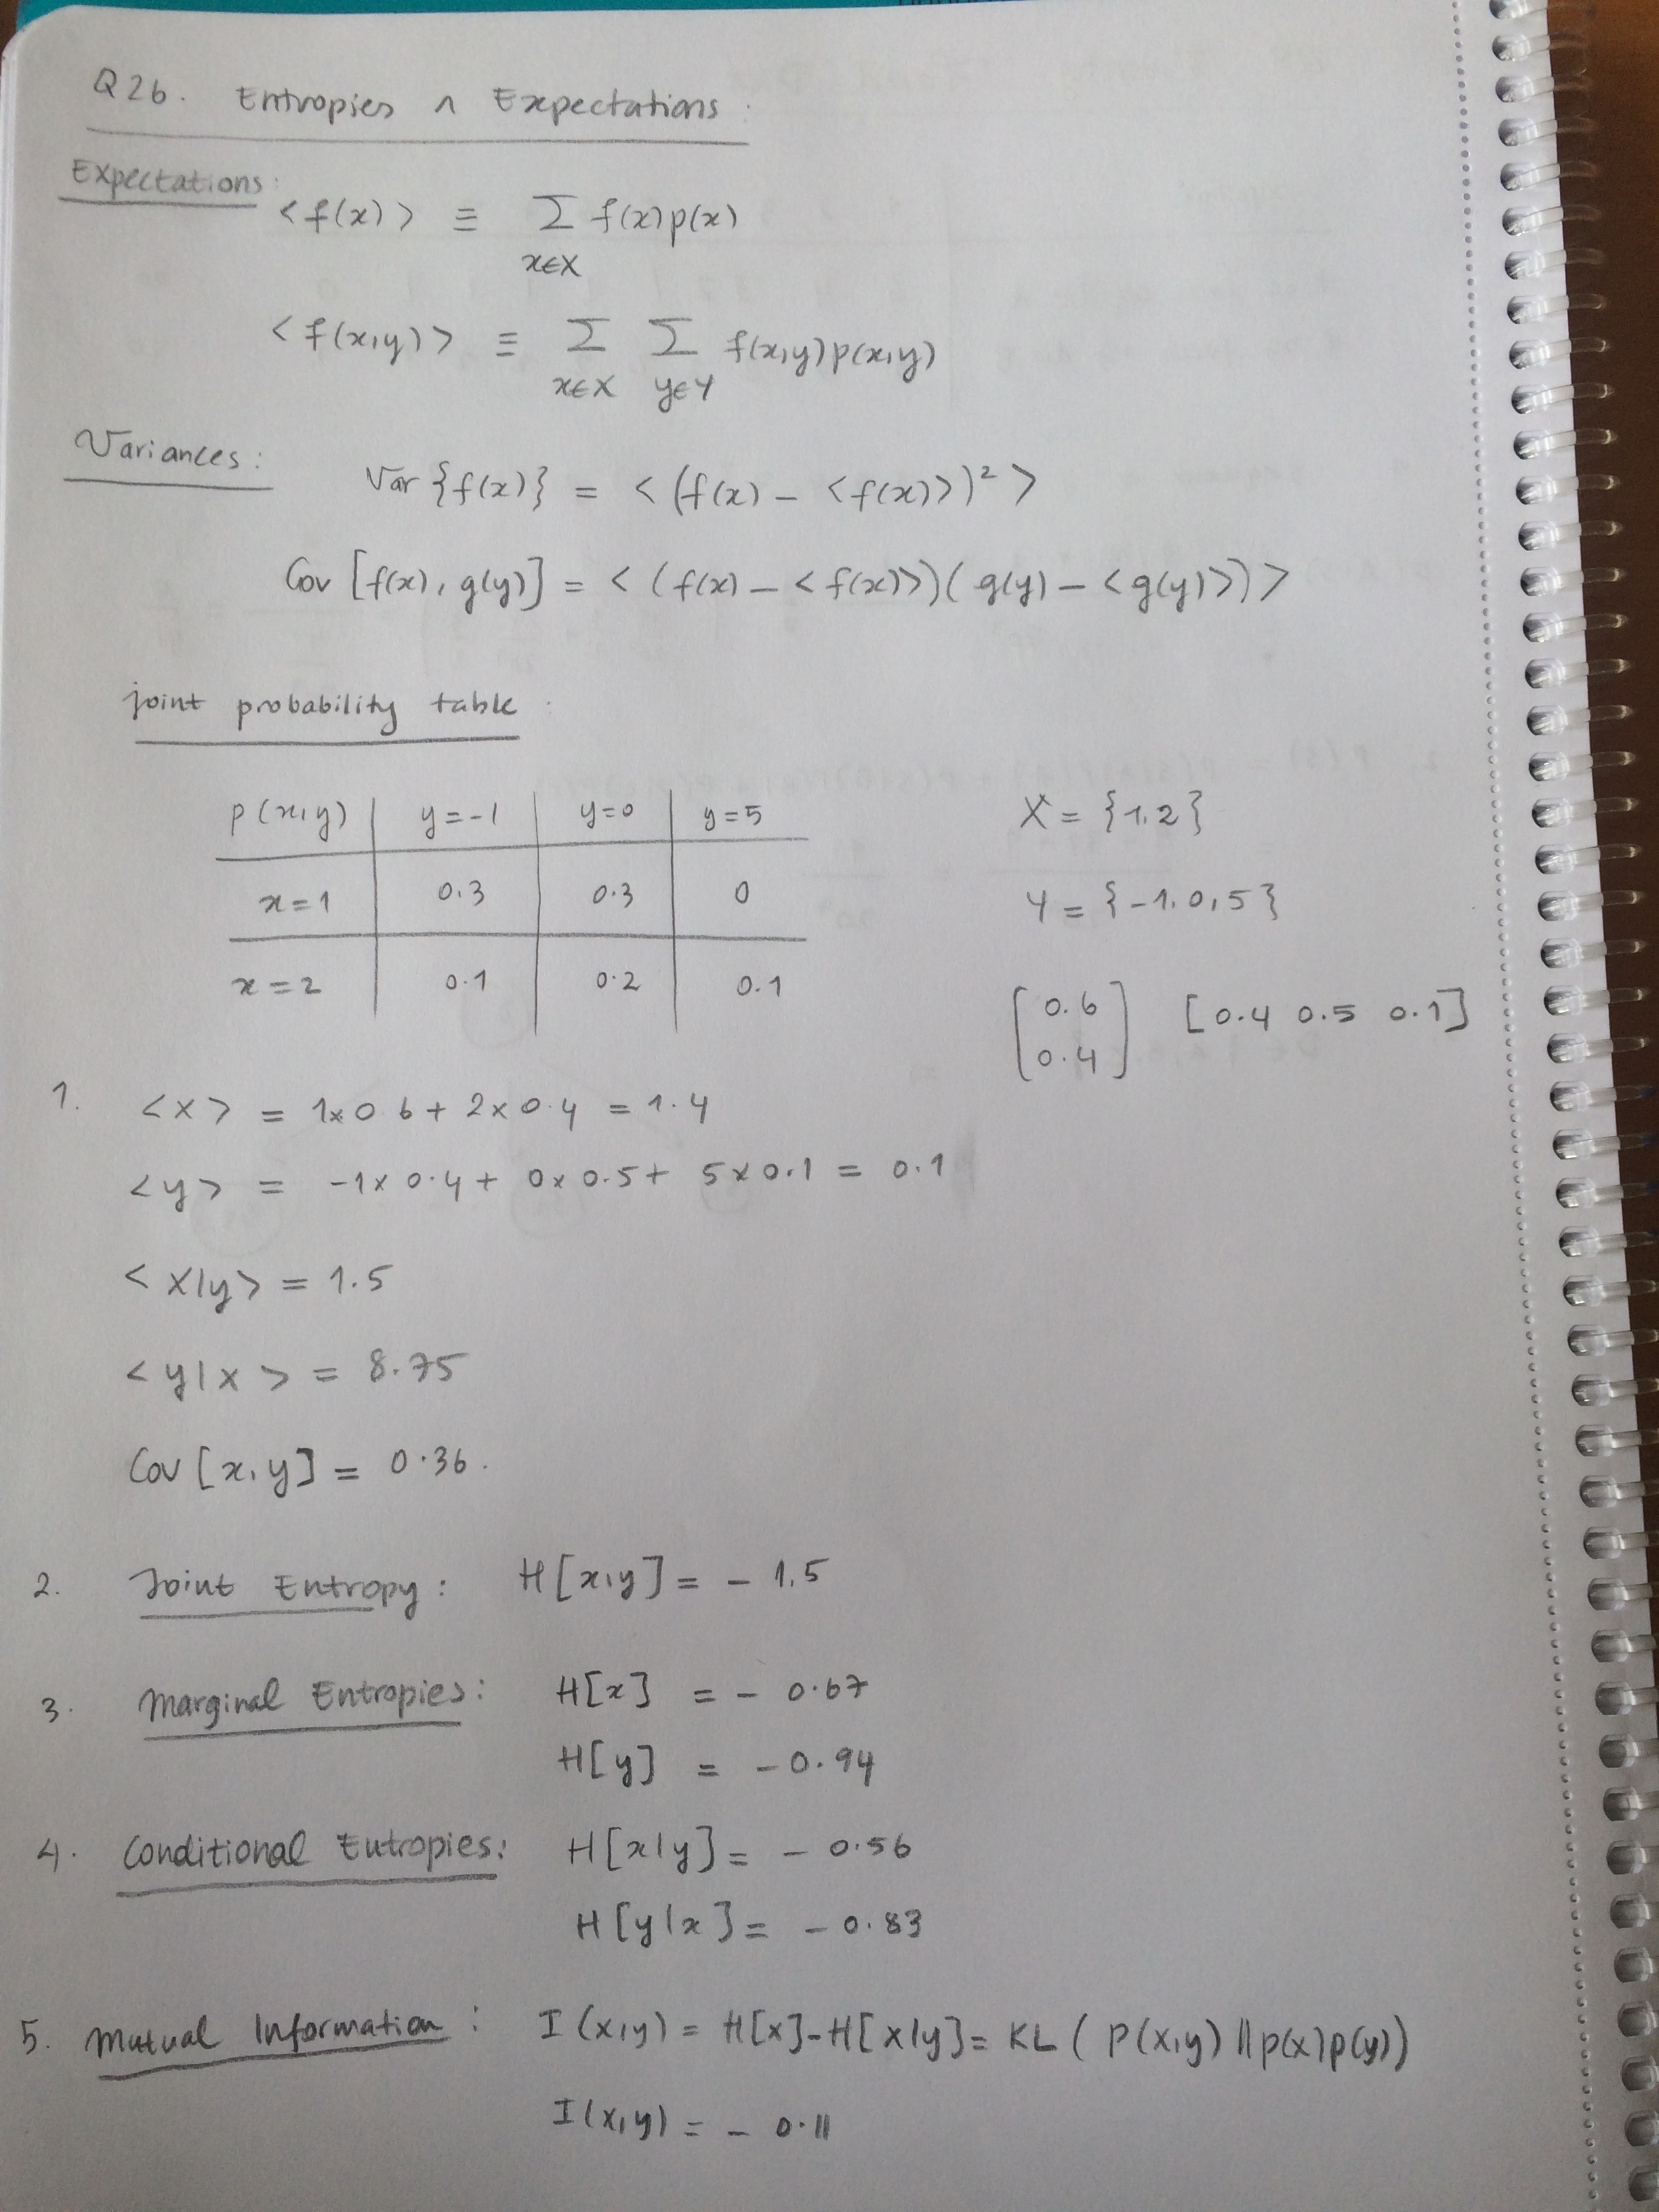 Q2b. Entropies ∧ Expectations
Expectations:
<f(x)> ≡ Σ f(x)p(x)
x∈X
<f(x,y)> ≡ Σ Σ f(x,y)p(x,y)
x∈X y∈Y
Variances:
Var {f(x)} = <(f(x) - <f(x)>)²>
Cov [f(x), g(y)] = <(f(x) - <f(x)>)(g(y) - <g(y)>)>
joint probability table
p(x,y) y=-1 y=0 y=5
x=1 0.3 0.3 0
x=2 0.1 0.2 0.1
X = {1,2}
Y = {-1,0,5}
[0.6 [0.4 0.5 0.1]
0.4]
1. <x> = 1×0.6 + 2×0.4 = 1.4
<y> = -1×0.4 + 0×0.5 + 5×0.1 = 0.1
<x|y> = 1.5
<y|x> = 8.75
Cov [x,y] = 0.36.
2. Joint Entropy: H[x,y] = - 1.5
3. Marginal Entropies: H[x] = - 0.67
H[y] = - 0.94
4. Conditional Entropies: H[x|y] = - 0.56
H[y|x] = - 0.83
5. Mutual Information: I(x,y) = H[x]-H[x|y] = KL(p(x,y)||p(x)p(y))
I(x,y) = - 0.11